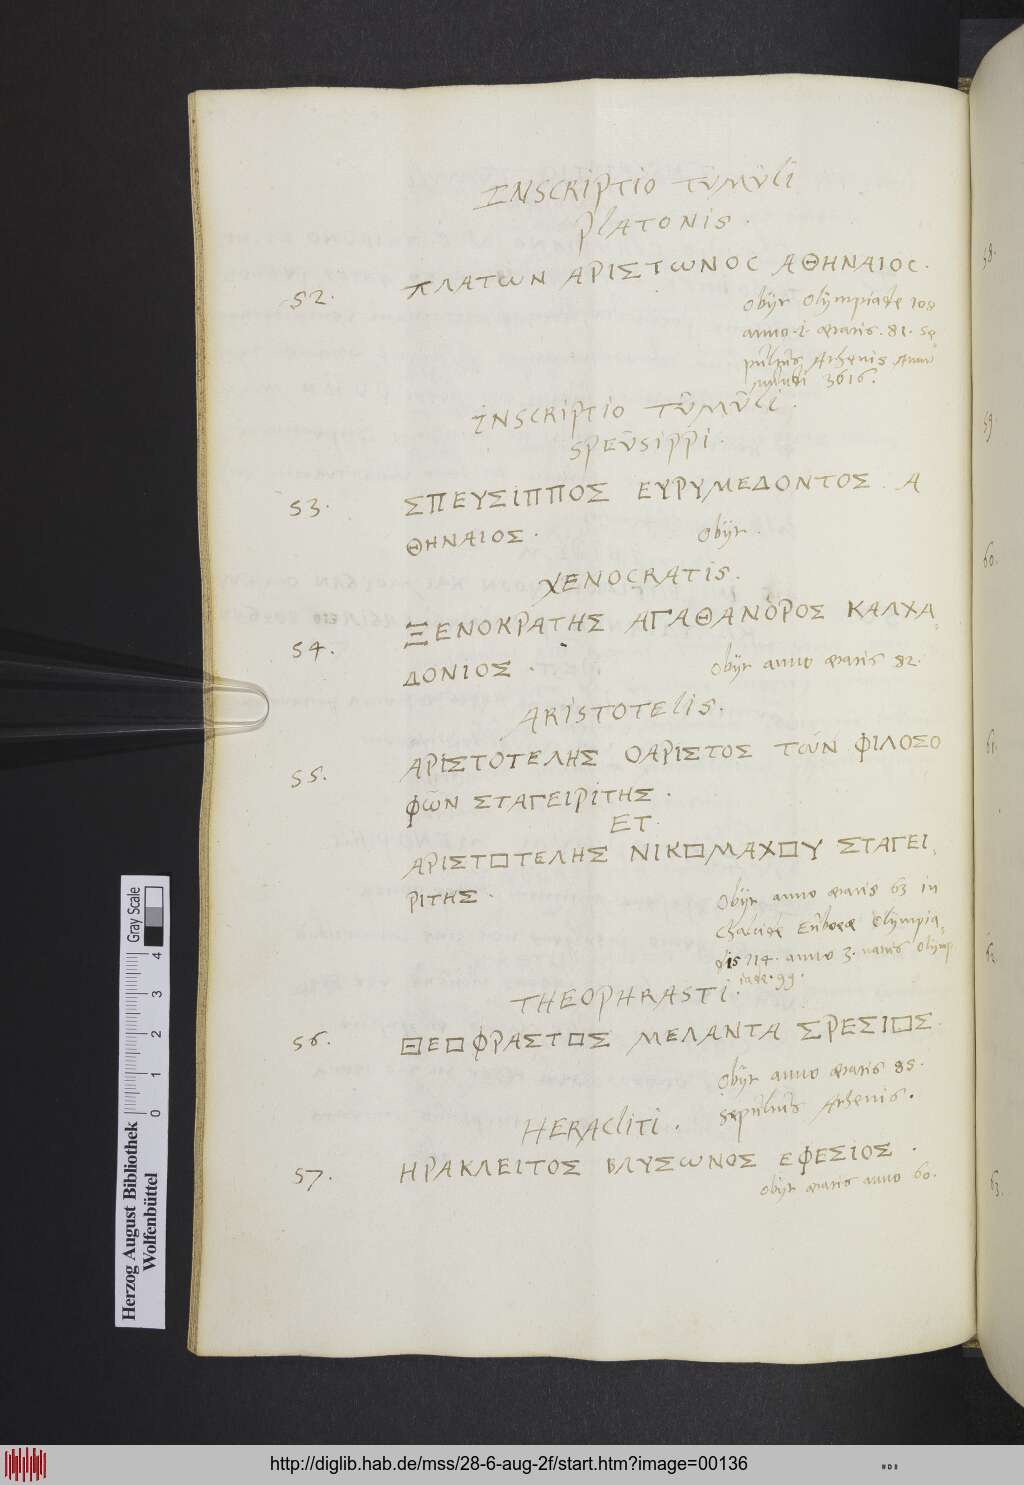 INSCRIPTIO TVMVLI
PLATONIS.
52. ΠΛΑΤΩΝ ΑΡΙΣΤΩΝΟC ΑΘΗΝΑΙΟC.
obijt Olympiade 108
anno .1. ætatis .81. se=
pultus Athenis Anno
mundi 3616.
INSCRIPTIO TVMVLI.
SPEVSIPPI.
53. ΣΠΕΥΣΙΠΠΟΣ ΕΥΡΥΜΕΔΟΝΤΟΣ . Α
ΘΗΝΑΙΟΣ.
obijt.
XENOCRATIS.
54. ΞΕΝΟΚΡΑΤΗΣ ΑΓΑΘΑΝΟΡΟΣ ΚΑΛΧΑ=
ΔΟΝΙΟΣ.
obijt anno ætatis 82.
ARISTOTELIS.
55. ΑΡΙΣΤΟΤΕΛΗΣ ΟΑΡΙΣΤΟΣ ΤΩΝ ΦΙΛΟΣΟ
ΦΩΝ ΣΤΑΓΕΙΡΙΤΗΣ.
ET.
ΑΡΙΣΤΟΤΕΛΗΣ ΝΙΚΟΜΑΧΟΥ ΣΤΑΓΕΙ=
ΡΙΤΗΣ.
obijt anno ætatis 63 in
Chalcide Euboeæ Olympia=
dis 114. anno 3. natus Olymp
iade. 99.
THEOPHRASTI.
56. ΘΕΟΦΡΑΣΤΟΣ ΜΕΛΑΝΤΑ ΣΡΕΣΙΟΣ.
obijt anno ætatis 85.
sepultus Athenis.
HERACLITI.
57. ΗΡΑΚΛΕΙΤΟΣ ΒΛΥΣΩΝΟΣ ΕΦΕΣΙΟΣ.
obijt ætatis anno 60.
58.
59.
60.
61.
62.
63.
Herzog August Bibliothek
Wolfenbüttel
Gray Scale
0 1 2 3 4
http://diglib.hab.de/mss/28-6-aug-2f/start.htm?image=00136